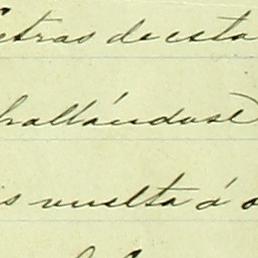 letras de esta
hallándose
vuelta á